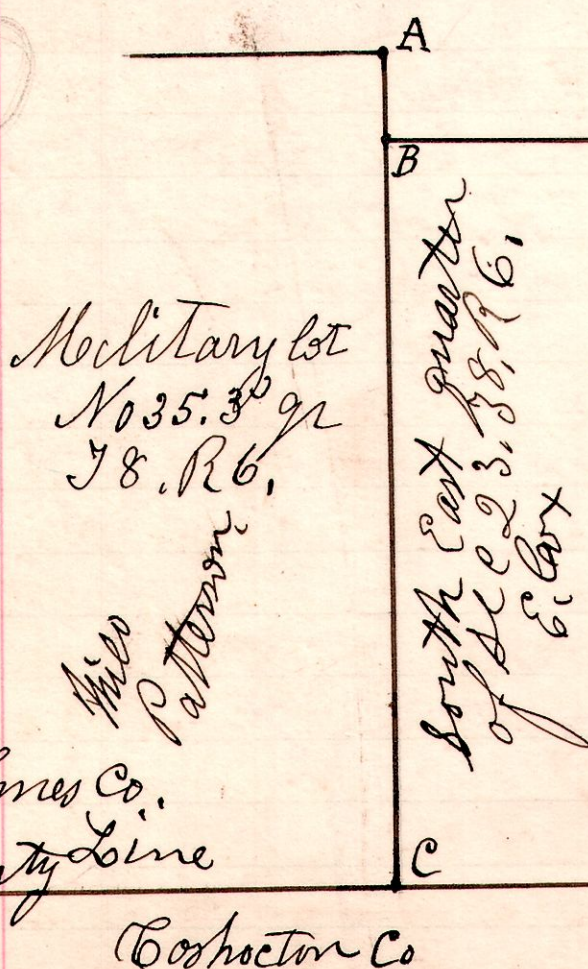 A
B
Military lot
No 35. 3d qr
T8. R6.
Patterson
South East quarter
of Sec 23. T8. R6.
E. Cox
mes Co.
ty Line
C
Coshocton Co